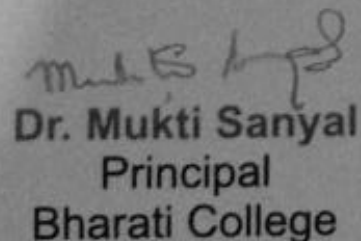 Dr. Mukti Sanyal
Principal
Bharati College